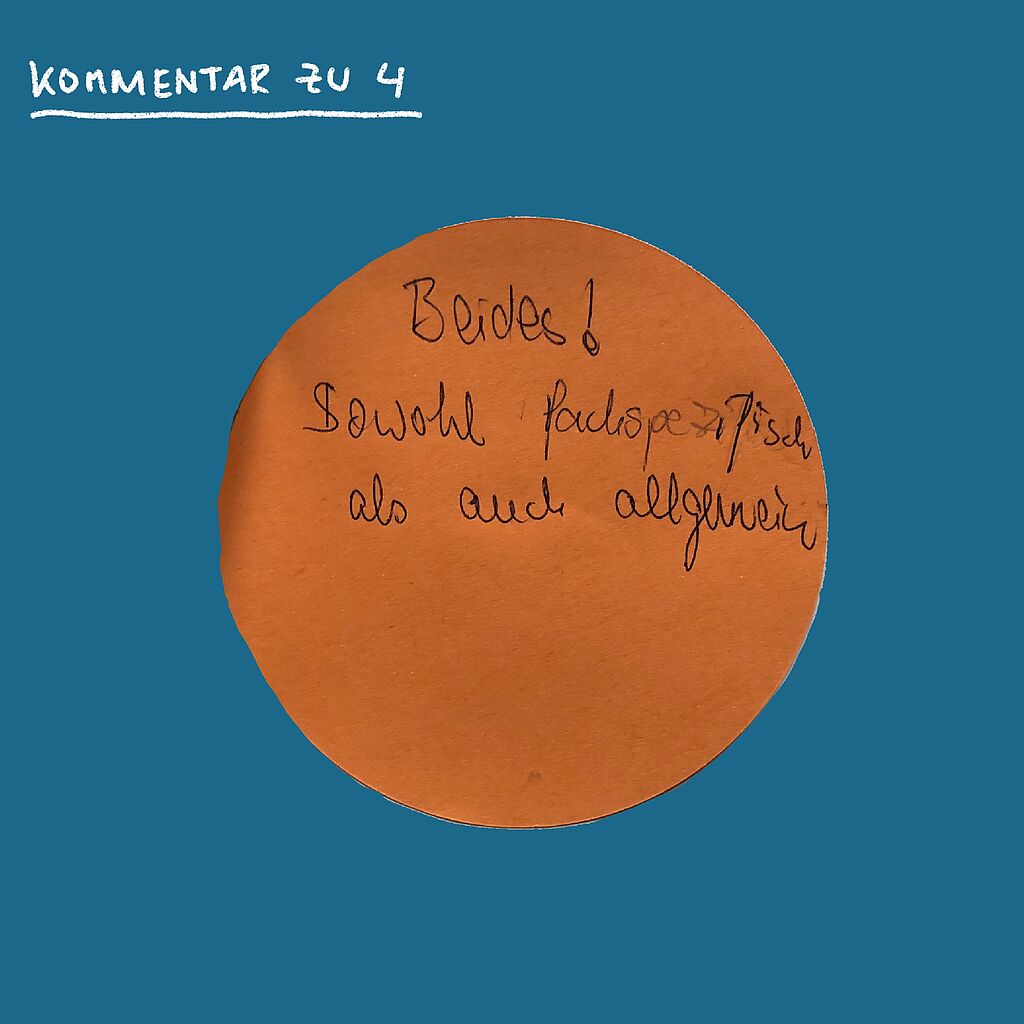 KOMMENTAR ZU 4
Beides!
Sowohl fachspezifisch
als auch allgemein